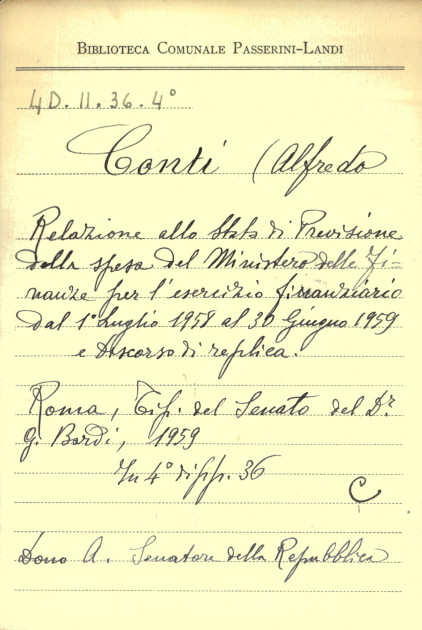 BIBLIOTECA COMUNALE PASSERINI-LANDI
4D. II. 36. 4°
Conti (Alfredo
Relazione allo Stato di Previsione
della spesa del Ministero delle Fi-
nanze per l'esercizio finanziario
dal 1° Luglio 1958 al 30 Giugno 1959
e Discorso di replica.
Roma, Tip. del Senato del Dr.
G. Bardi, 1959
In 4° di pp. 36
C
Dono A. Senatore della Repubblica